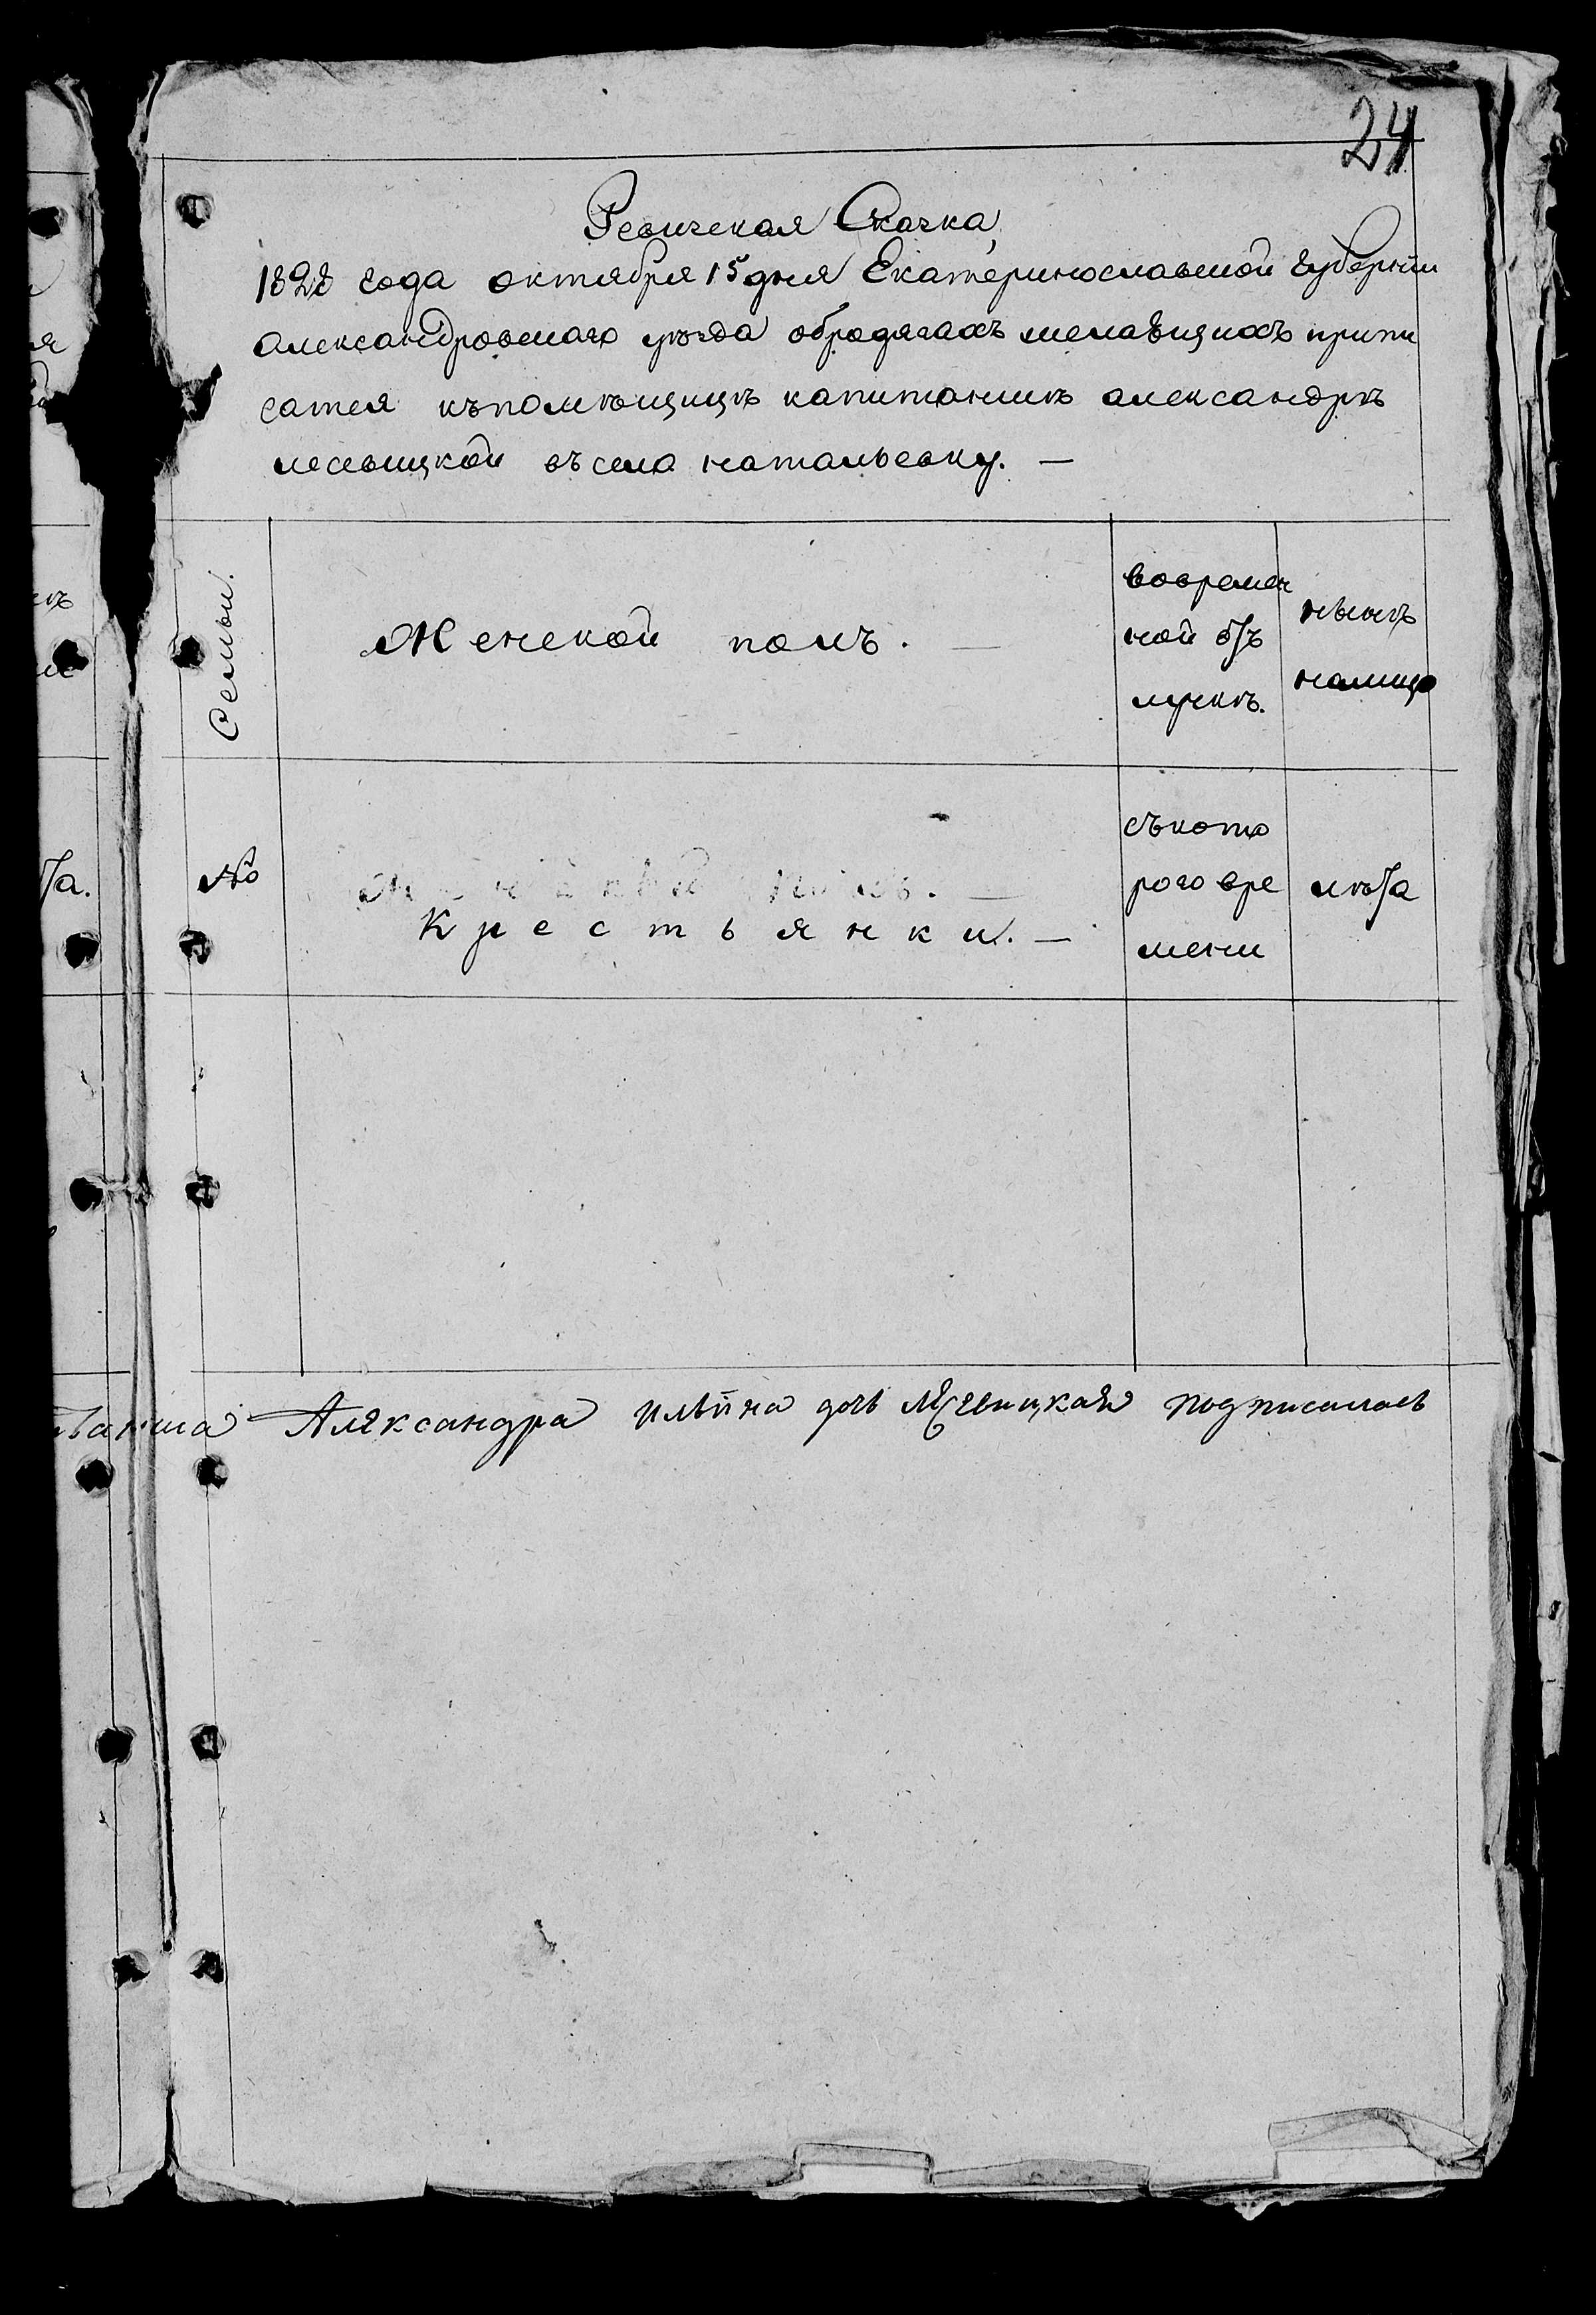 24
Ревижская Скаска
1828 года октября 15 дня Екатеринославской губернии
александровскаго уѣзда обродягахъ желающихъ припи
сатся къпомѣщицѣ капитаншѣ александрѣ
лесевицкой въ село натальевку. —
Семьи.
Женской полъ. —
вовремен
ной отъ
лучкѣ.
нынѣ
налицо
№
Крестьянки. —
съкото
рого вре
мени
лѣта
Александра Ильина дочь Лесевицкая подписалась